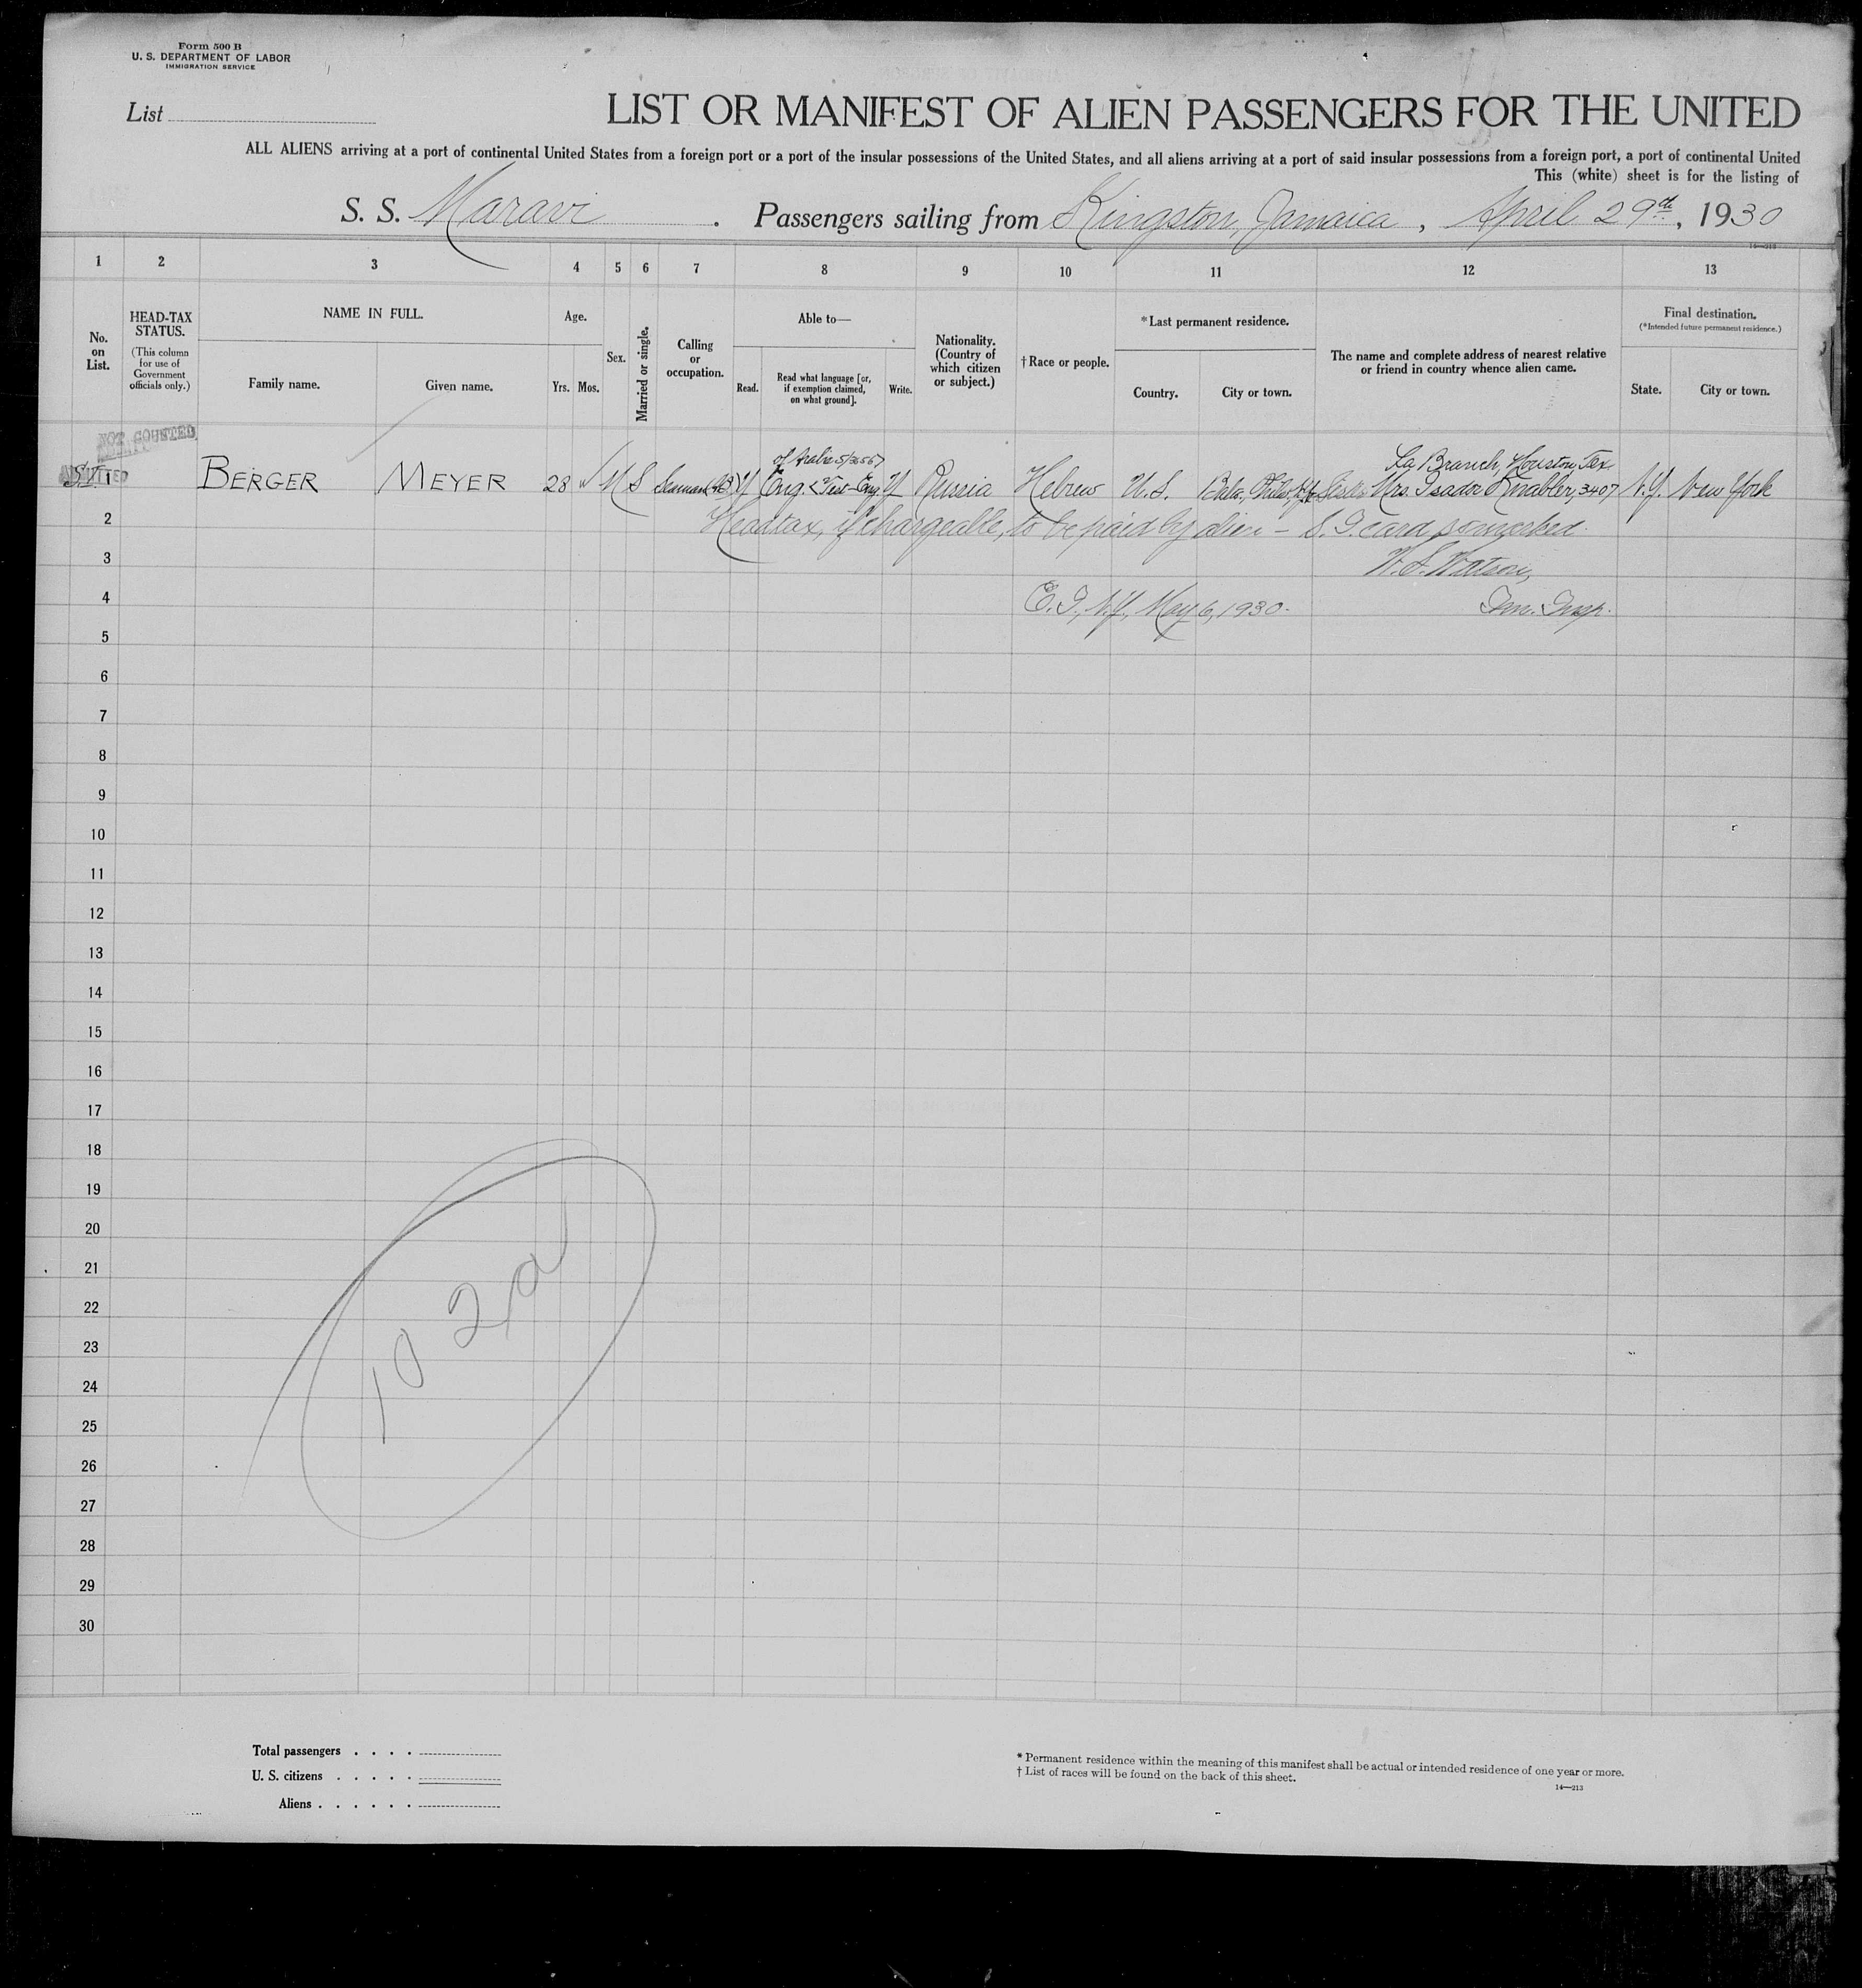 Form 500 B
U. S. DEPARTMENT OF LABOR
IMMIGRATION SERVICE
List
LIST OR MANIFEST OF ALIEN PASSENGERS FOR THE UNITED
ALL ALIENS arriving at a port of continental United States from a foreign port or a port of the insular possessions of the United States, and all aliens arriving at a port of said insular possessions from a foreign port, a port of continental United
This (white) sheet is for the listing of
S. S. Maravi. Passengers sailing from Kingston, Jamaica, April 29th, 1930
1 2 3 4 5 6 7 8 9 10 11 12 13
No. on List.
HEAD-TAX STATUS.
(This column for use of Government officials only.)
NAME IN FULL.
Family name. Given name.
Age.
Yrs. Mos.
Sex.
Married or single.
Calling or occupation.
Able to—
Read. Read what language [or, if exemption claimed, on what ground]. Write.
Nationality. (Country of which citizen or subject.)
†Race or people.
*Last permanent residence.
Country. City or town.
The name and complete address of nearest relative or friend in country whence alien came.
Final destination.
(*Intended future permanent residence.)
State. City or town.
NOT COUNTED
ADMITTED
La Branch, Houston, Tex.
1 BERGER MEYER 28 M S Seaman Y Eng. Test-Eng. Y Russia Hebrew U.S. Bala, Phila, Mrs. Isador 3407 N.Y. New York
2 Headtax, if chargeable, to be paid by alien – S.I. card so marked.
3 W.S. Watson,
4 E.I., N.Y., May 6, 1930. Imm. Insp.
5
6
7
8
9
10
11
12
13
14
15
16
17
18
19
20
21
22
23
24
25
26
27
28
29
30
102a
Total passengers . . . .
U. S. citizens . . . . .
Aliens . . . . . .
* Permanent residence within the meaning of this manifest shall be actual or intended residence of one year or more.
† List of races will be found on the back of this sheet.
14—213